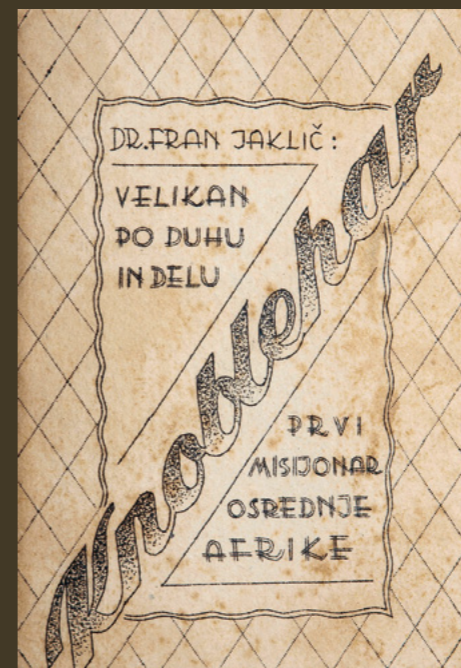 DR. FRAN JAKLIČ:
VELIKAN
PO DUHU
IN DELU
Knoblehar
PRVI
MISIJONAR
OSREDNJE
AFRIKE